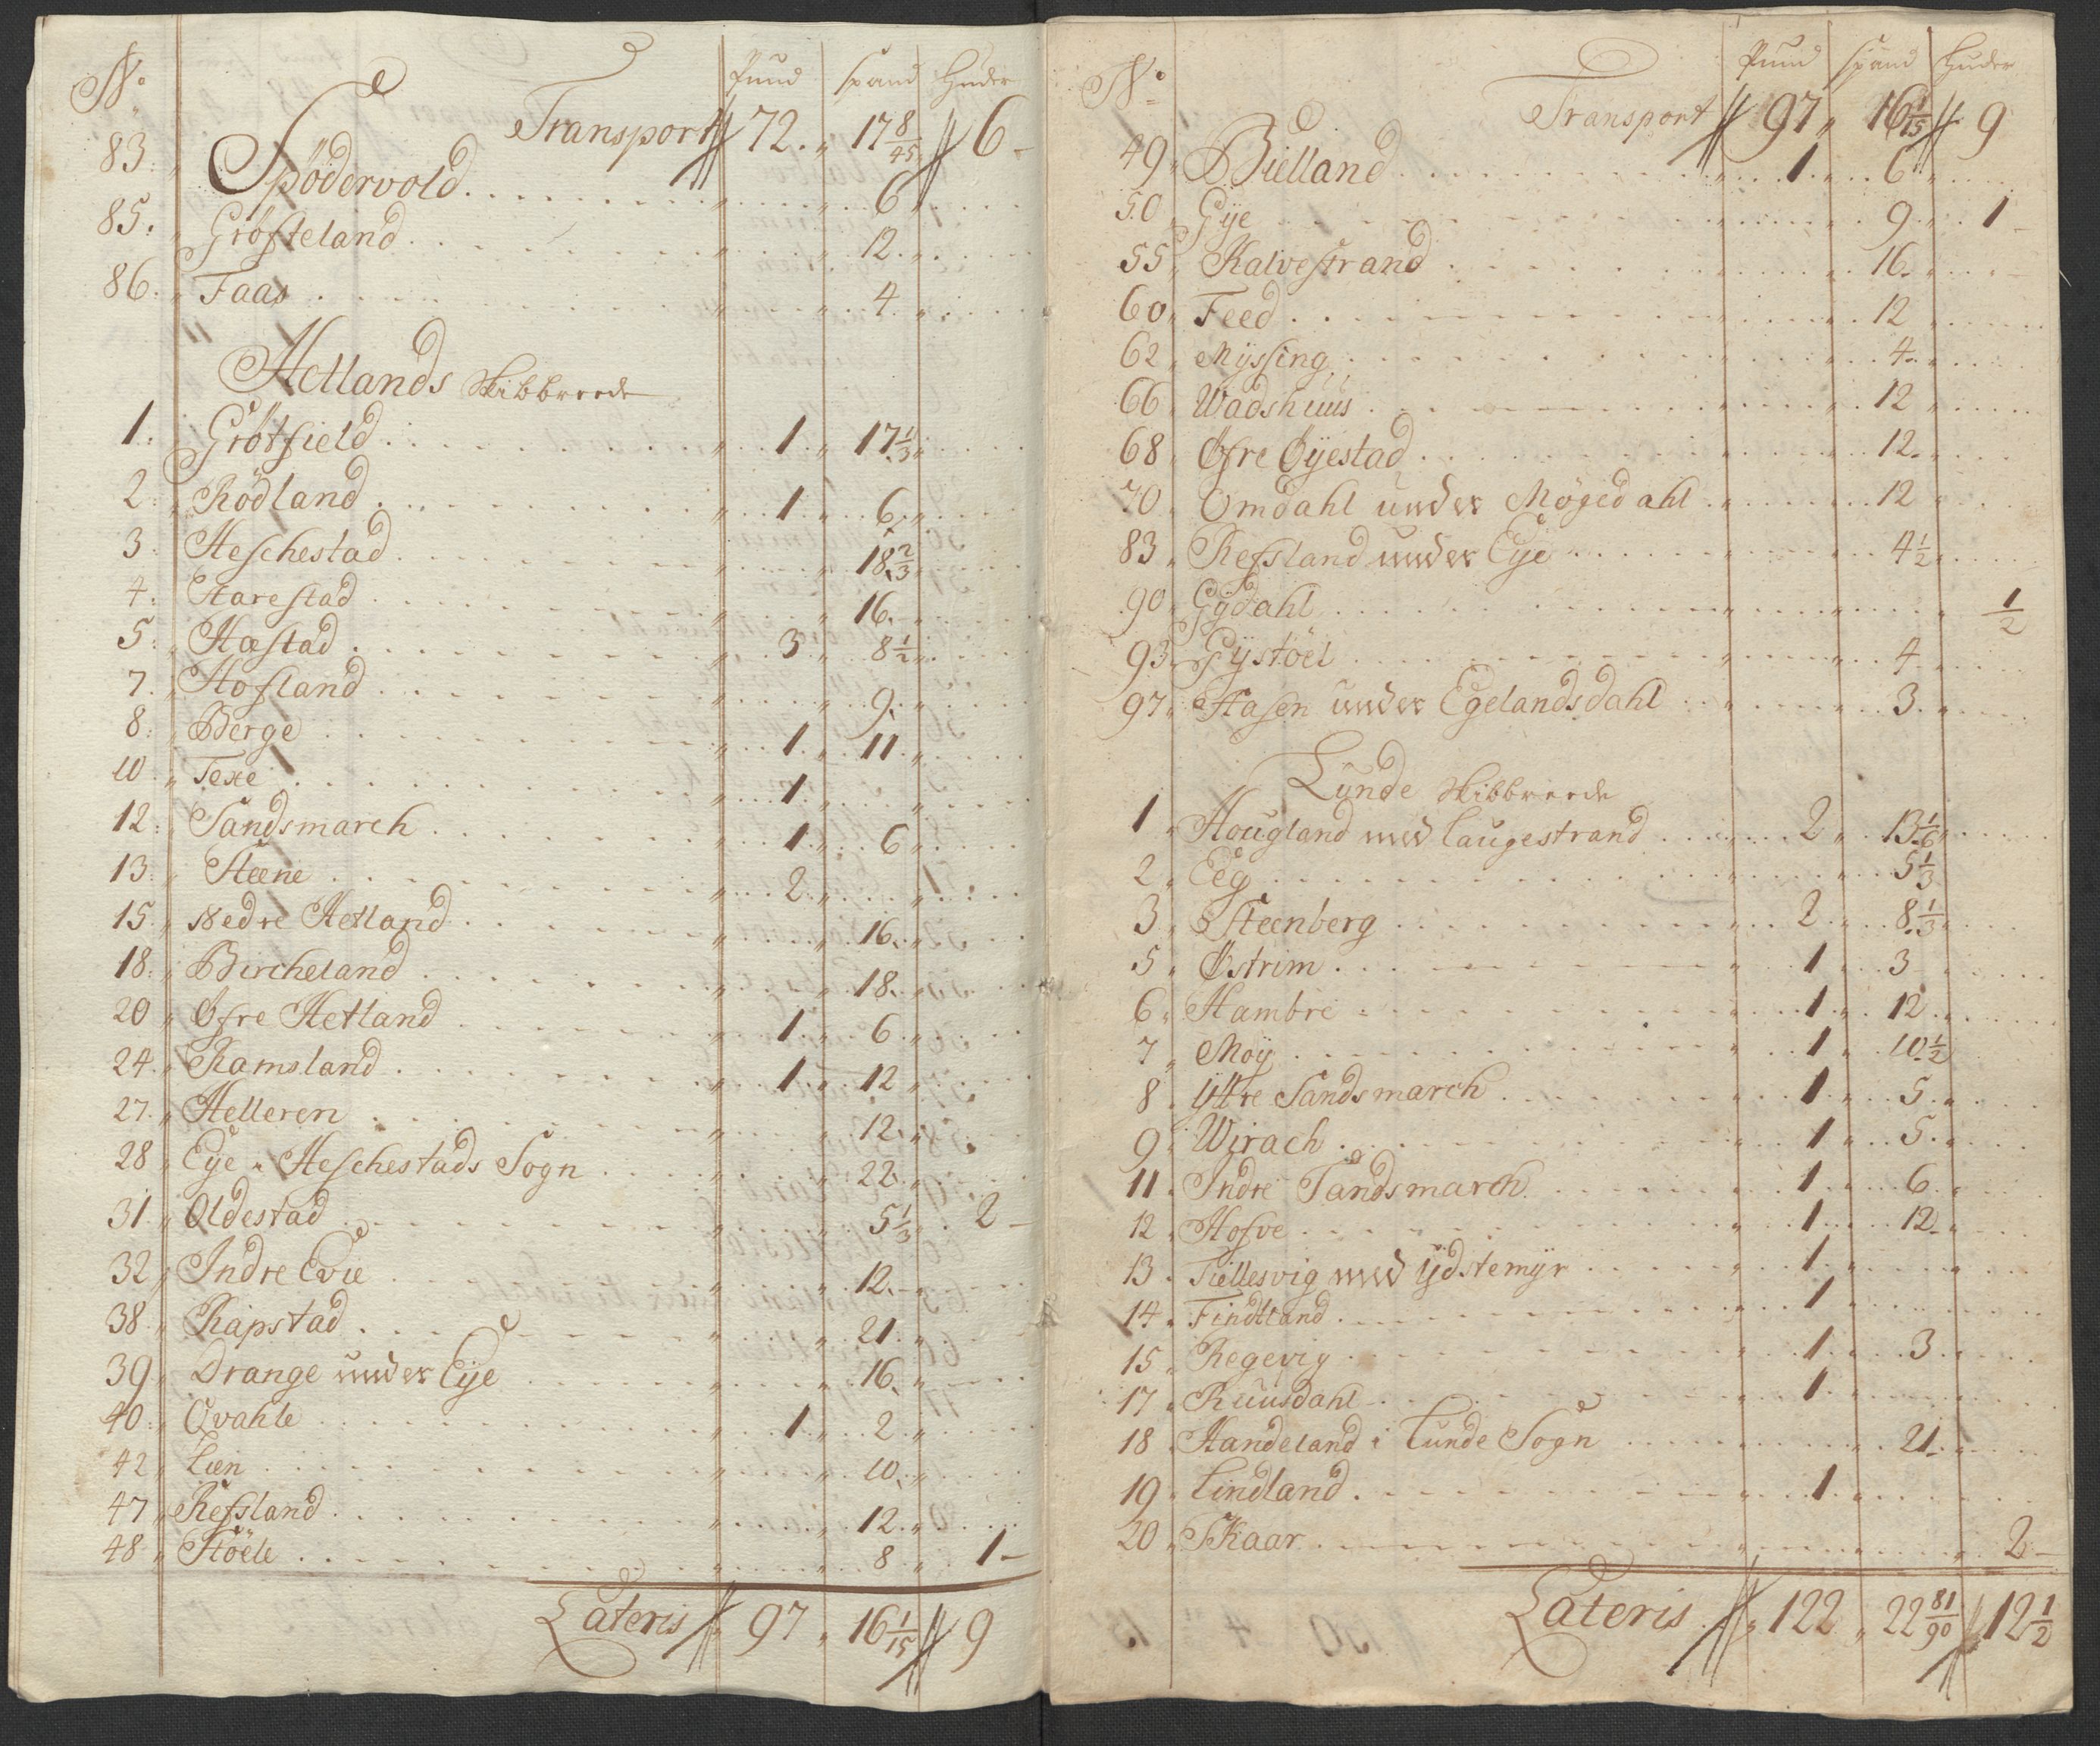 No Pund Spand Huder
Transport 72. 17 8/45 6 -
83. Spödervold 6
85. Gröfsteland 12.
86. Faas 4
Hetlands Skibbrede
1. Grötfield 1 17 1/3
2. Rödland 1 6.
3. Heschestad 18 2/3
4. Starestad 16.
5. Hæstad 3 8 1/2
7. Hofland 9.
8. Berge 1 11
10 Texe 1
12. Sandsmarch 1 6
13. Steene 2
15. Nedre Hetland 16.
18. Bircheland 18.
20 Øfre Hetland 1 6
24. Ramsland 1 12
27. Helleren 12.
28 Eÿe i Heschestads Sogn 22.
31. Oldestad 5 1/3 2 -
32 Indre Evie 12.
38 Rapstad 21.
39 Drange under Eÿe 16.
40 Qvahle 1 2
42 Lien 10.
47 Refsland 12.
48 Stöele 8 1 -
Lateris 97 16 1/15 9
No Pund Spand Huder
Transport 97 16 1/15 9
49 Bielland 1 6
50 Gÿe 9 1
55 Kalvestrand 16.
60 Feed 12
62 Mÿssing 4.
66 Wadshuus 12
68 Øfre Øÿestad 12.
70 Omdahl under Mögedahl 12
83 Refsland under Eÿe 4 1/2
90 Gÿdahl 1/2
93 Gÿstöel 4
97 Stasen under Egelandsdahl 3.
Lunde Skibbrede
1 Hougland med Laugestrand 2 13 1/6
2 Eeg 5 1/3
3 Steenberg 2 8 1/3
5 Østrim 1 3
6 Hambre 1 12
7 Moÿ 1 10 1/2
8 Ÿttre Sandsmarch 1 5.
9 Wirach 1 5.
11. Indre Sandsmarch 1 6
12 Hofve 1 12
13 Tiellesvig med Ÿdstemÿr 1
14 Findtland 1
15 Regevig 1 3
17 Ruusdahl 1
18 Handeland i Lunde Sogn 21.
19 Lindland 1
20 Skaar 2 -
Lateris 122 22 81/90 12 1/2